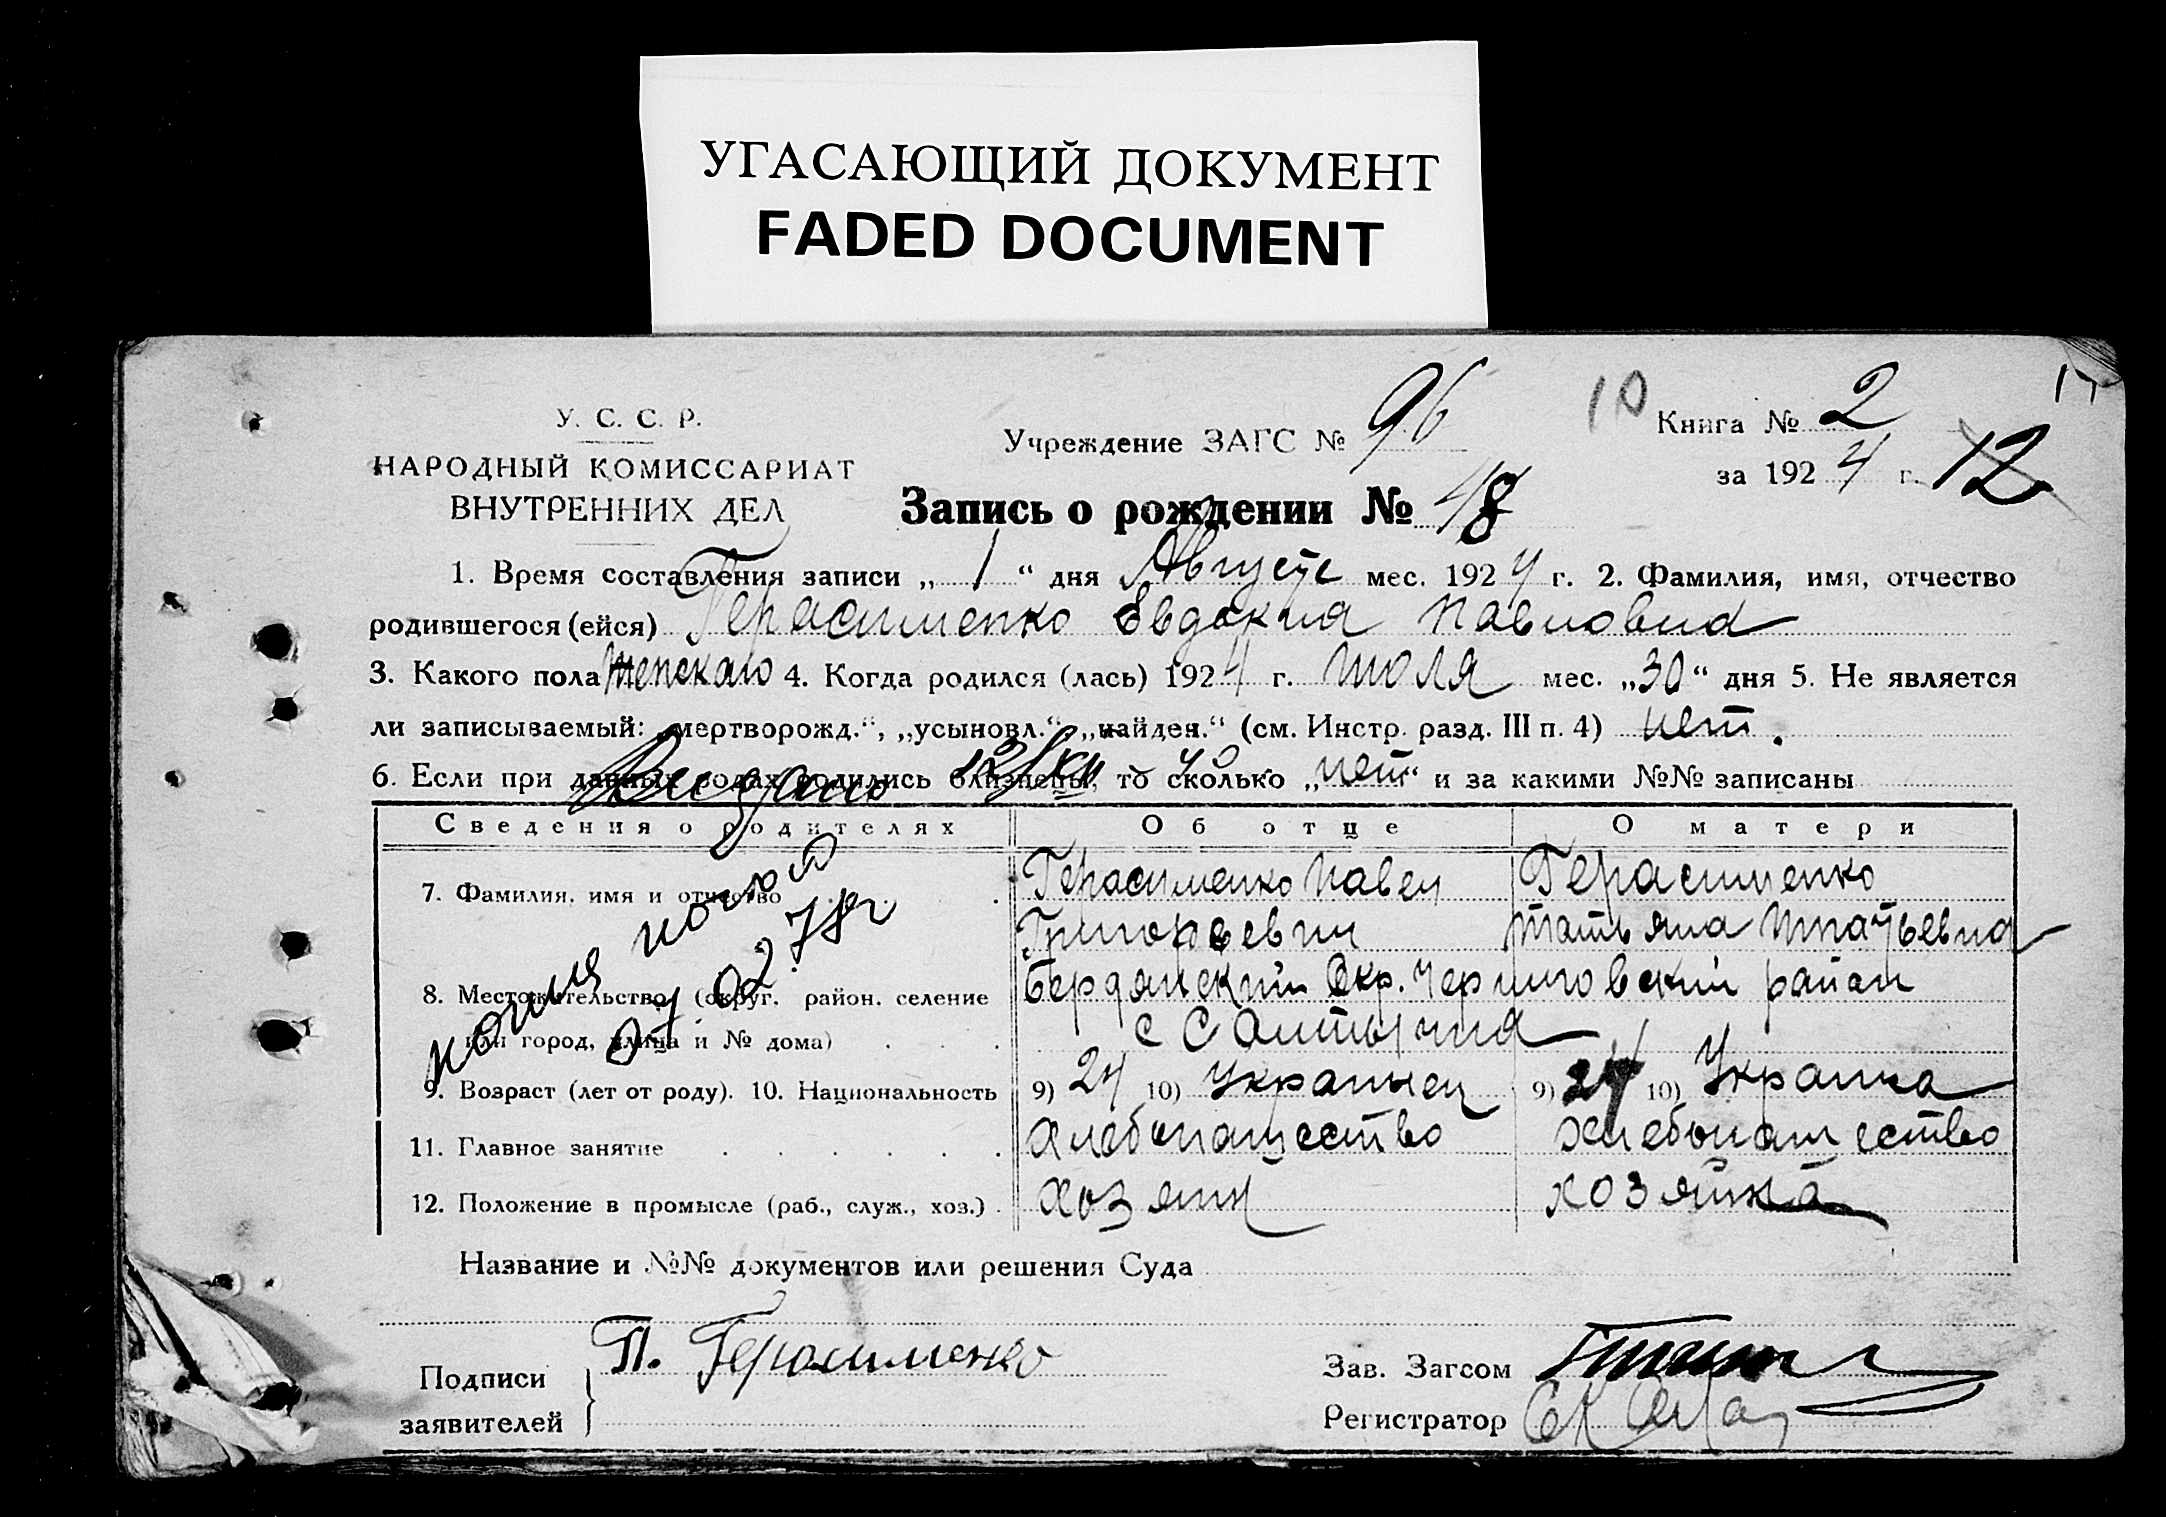 УГАСАЮЩИЙ ДОКУМЕНТ
FADED DOCUMENT
У. С. С. Р.
НАРОДНЫЙ КОМИССАРИАТ
ВНУТРЕННИХ ДЕЛ
Учреждение ЗАГС № 96
10 Книга № 2
за 1924 г. 12
Запись о рождении № 48
1. Время составления записи „ 1 “ дня Августа мес. 1924 г. 2. Фамилия, имя, отчество
родившегося (ейся) Герасименко Евдокия Павловна
3. Какого пола Женскаго 4. Когда родился (лась) 1924 г. Июля мес. „30“ дня 5. Не является
ли записываемый: „мертворожд.“, „усыновл.“ „найден.“ (см. Инстр. разд. III п. 4) нет.
6. Если при данных родах родились близнецы, то сколько „нет“ и за какими №№ записаны
Выдано
Сведения о родителях Об отце О матери
7. Фамилия, имя и отчество Герасименко Павел Герасименко
Григорьевич Татьяна Игнатьевна
8. Местожительство (округ, район, селение Бердянский Окр. Черниговский район
или город, улица и № дома) с Салтычия
9. Возраст (лет от роду). 10. Национальность 9) 24 10) Украинец 9) 24 10) Украинка
11. Главное занятие Хлебопашество Хлебопашество
12. Положение в промысле (раб., служ., хоз.) хозяин хозяйка
копия
02.78г
Название и №№ документов или решения Суда
Подписи
заявителей
П. Герасименко
Зав. Загсом
Регистратор